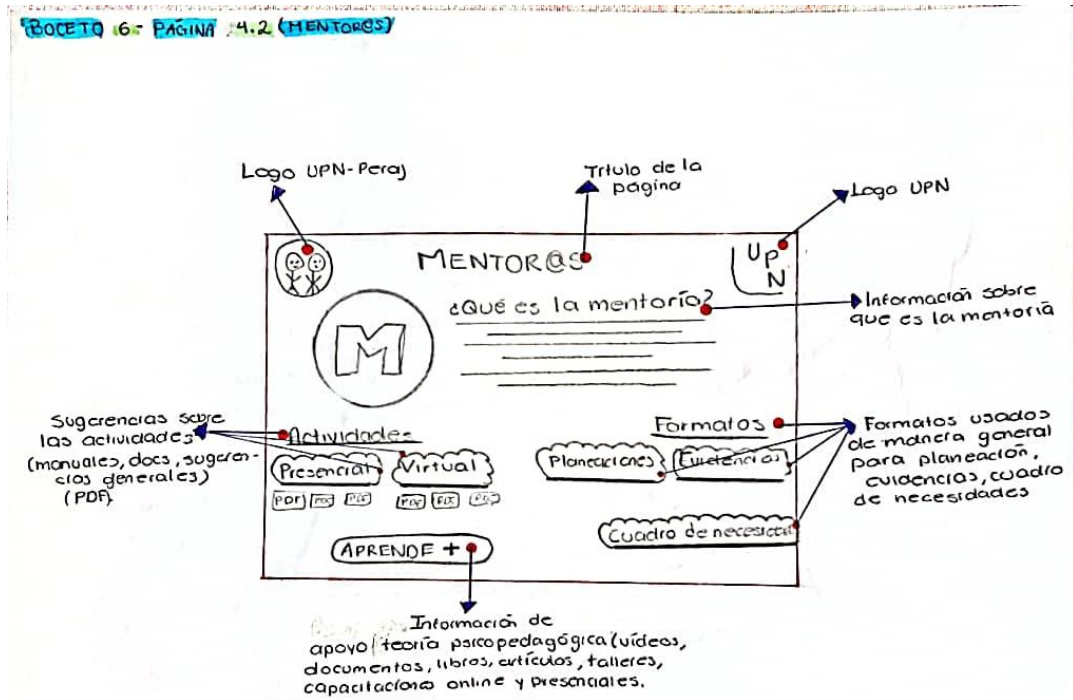 BOCETO 6- PÁGINA 4.2 (MENTOR@S)
Logo UPN-Peraj
Título de la
página
Logo UPN
MENTOR@S
UPN
¿Qué es la mentoría?
M
Información sobre
que es la mentoría
Sugerencias sobre
las actividades
(manuales, docs, sugeren-
cias generales)
(PDF)
Actividades
Presencial
Virtual
PDF PDF PDF
PDF PDF PDF
Formatos
Planeaciones
Evidencias
Cuadro de necesidad
Formatos usados
de manera general
para planeación,
evidencias, cuadro
de necesidades
APRENDE +
Información de
apoyo/teoría psicopedagógica (vídeos,
documentos, libros, artículos, talleres,
capacitaciones online y presenciales.